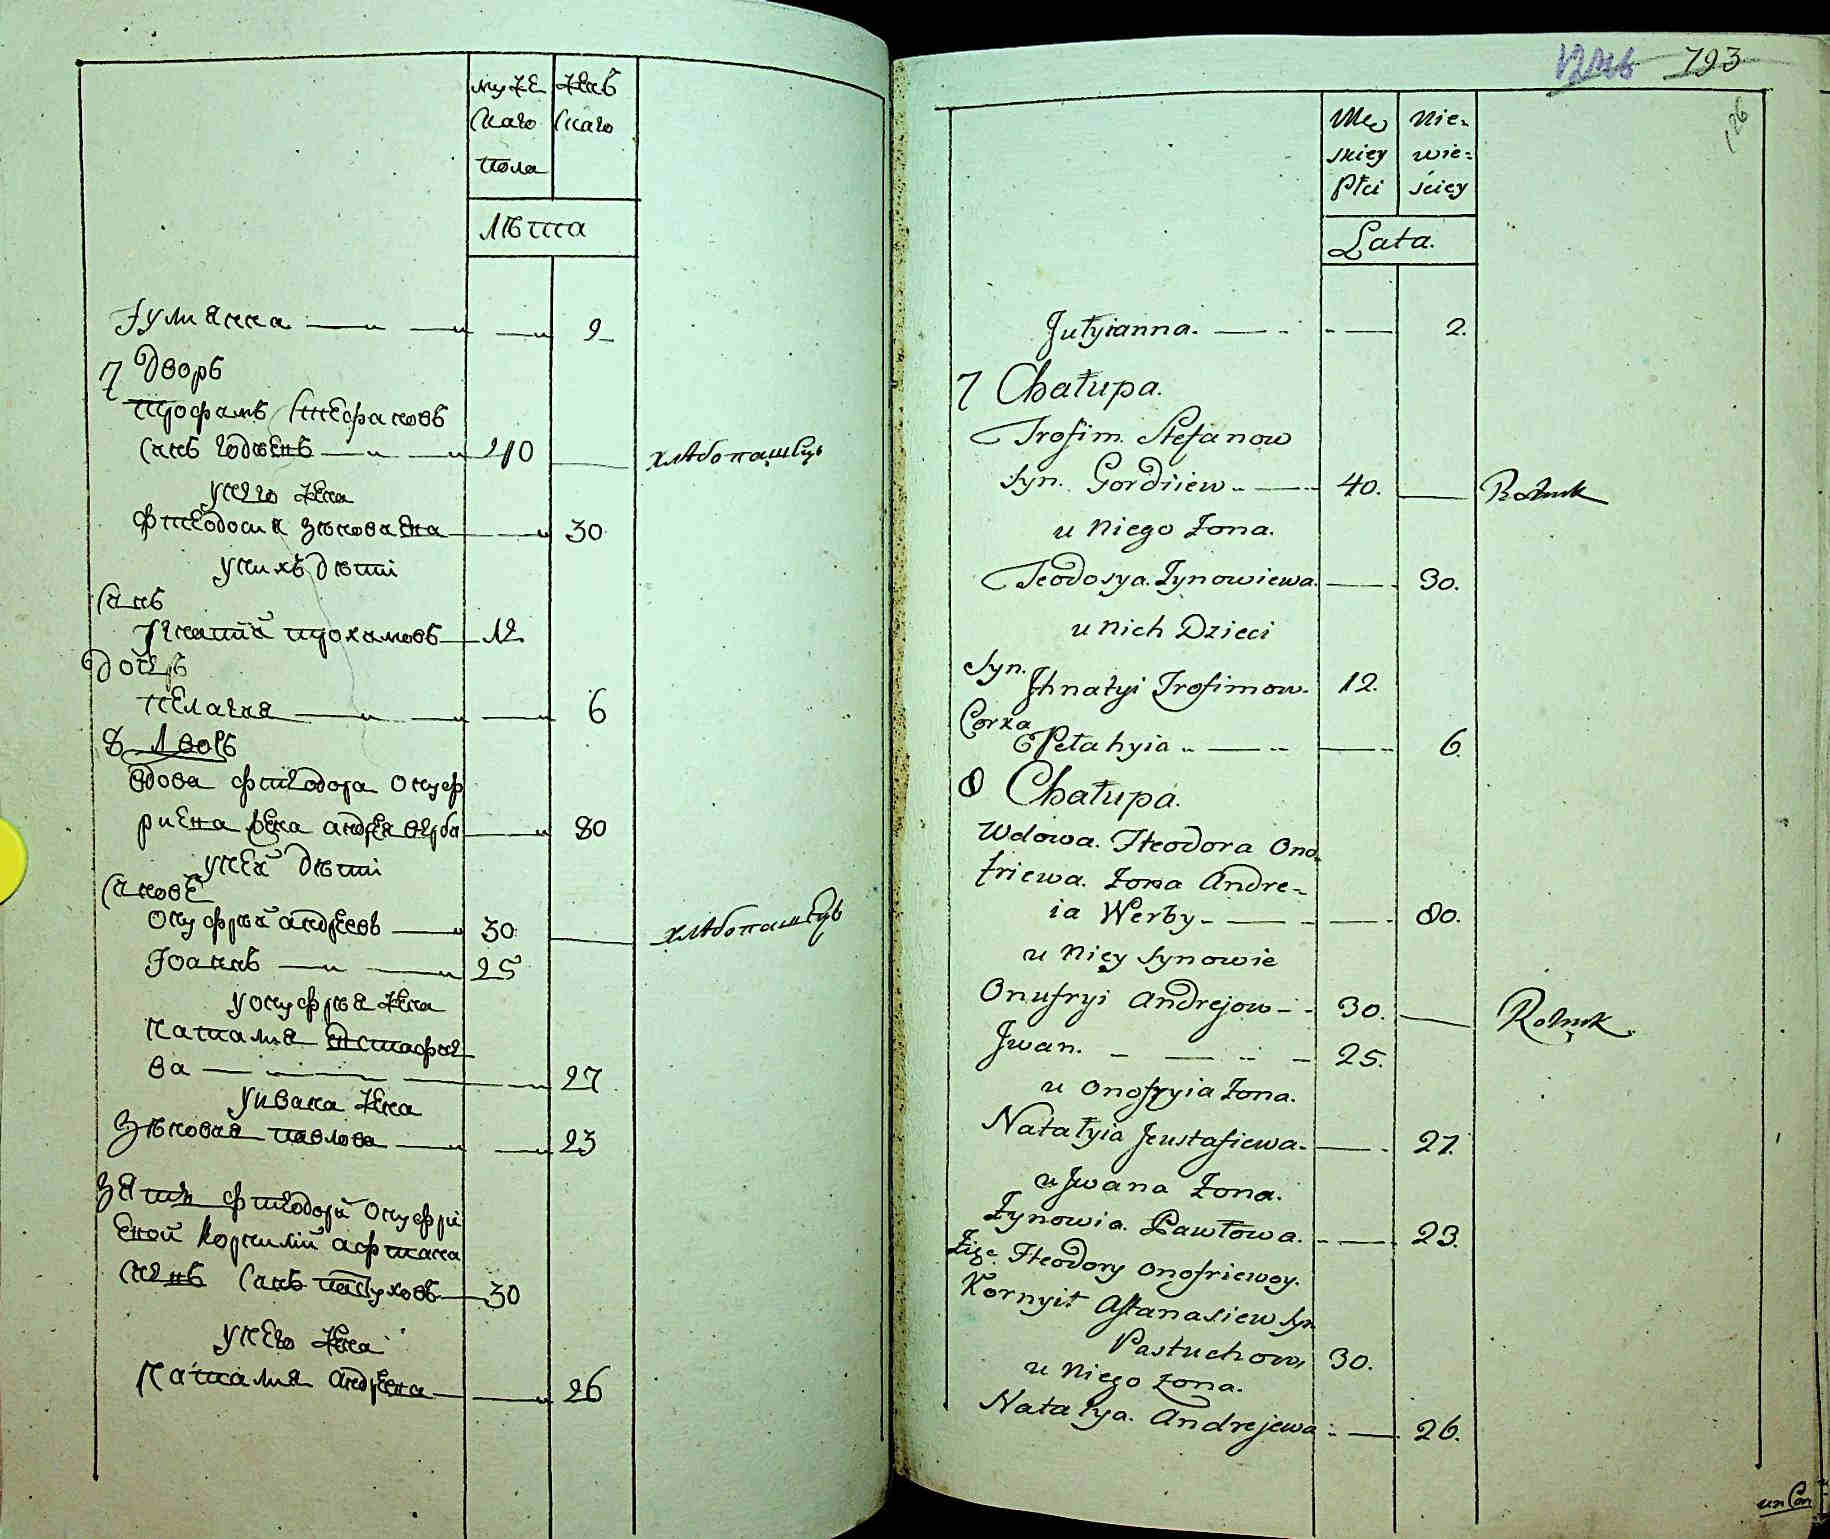 муже женъ
скаго скаго
пола
лѣта
Іулианна — — — 2
7 дворъ
трофимъ стефановъ
сынъ гордѣевъ — — 40 — хлѣбопашецъ
у него жена
фтеодосия зѣновиева — — 30
у нихъ дѣти
сынъ
Игнатий трофимовъ — 12
дочерь
пелагия — — — 6
8 дворъ
вдова фтеодора онуф
риева жена андрея верби — 80
у ней дѣти
сынове
онуфрий андреевъ — 30 — хлѣбопашецъ
Іоаннъ — — 25
у онуфрия жена
наталия евстафие
ва — — — 27
у ивана жена
зѣновия павлова — — 23
зять фтеодори онуфри
евой корнилий афтана
сиевъ сынъ пастуховъ — 30
у него жена
наталия андреева — — 26
793
126
Mę Nie-
skiey wie-
Płci ściey
Lata.
Jułyianna. — — 2.
7 Chałupa.
Trofim Stefanow
Syn. Gordiiew — 40. — Rolnik
u Niego Zona.
Teodosya. Zynowiewa. — 30.
u Nich Dzieci
Syn.
Jhnatyi Trofimow. 12.
Corka
Pełahyia — — 6.
8 Chałupa.
Wdowa. Fteodora Ono
friewa. Zona Andre-
ia Werby — — 80.
u Niey Synowie
Onufryi Andrejow — 30. — Rolnik.
Jwan. — — 25.
u Onofryia Zona.
Natałyia Jeustafiewa. — 27.
u Jwana Zona.
Zynowia. Pawłowa. — 23.
Zięc Fteodory Onofriewoy.
Kornyił Aftanasiew syn
Pastuchow 30.
u Niego Zona.
Natałya. Andrejewa — 26.